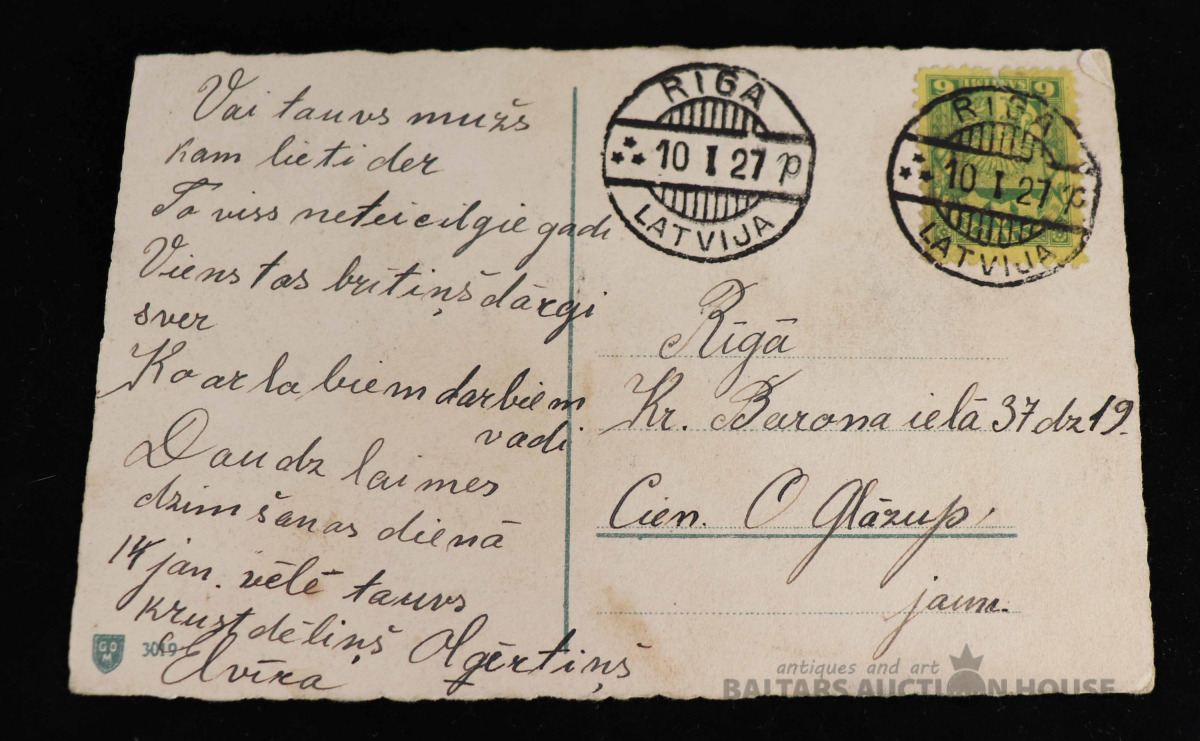 Vai tauvs mužs
kam lieti der
To viss neteic ilgie gadi
Viens tas brītiņš dārgi
sver
Ko ar labiem darbiem
vadi
Daudz laimes
dzimšanas dienā
14 jan. vēlē tauvs
krustdēliņš Oļģertiņš
Elvīra
GOM
3019
RIGA
10 I 27 p
LATVIJA
6 6
RIGA
10 I 27 p
LATVIJA
Rīgā
Kr. Barona ielā 37 dz 19.
Cien. O Glāzup,
jaun.
antiques and art
BALTARS AUCTION HOUSE